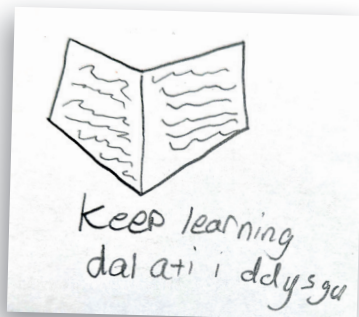 keep learning
dal ati i ddysgu